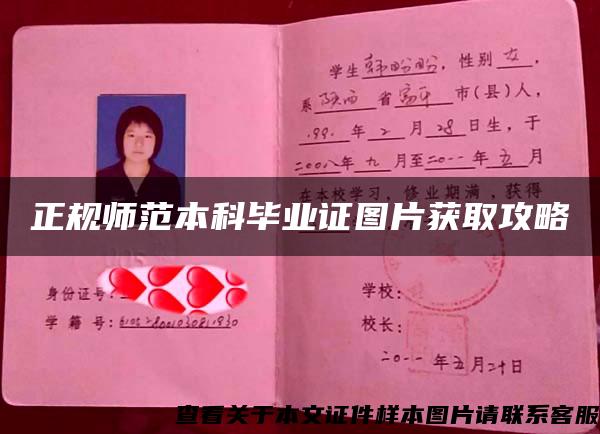 学生韩盼盼，性别女，
系陕西省富平市(县)人，
年2月28日生，于
二00八年九月至二0一一年五月
在本校学习，修业期满，获得
正规师范本科毕业证图片获取攻略
身份证号：
学籍号：
学校：
校长：
二0一一年五月二十日
查看关于本文证件样本图片请联系客服